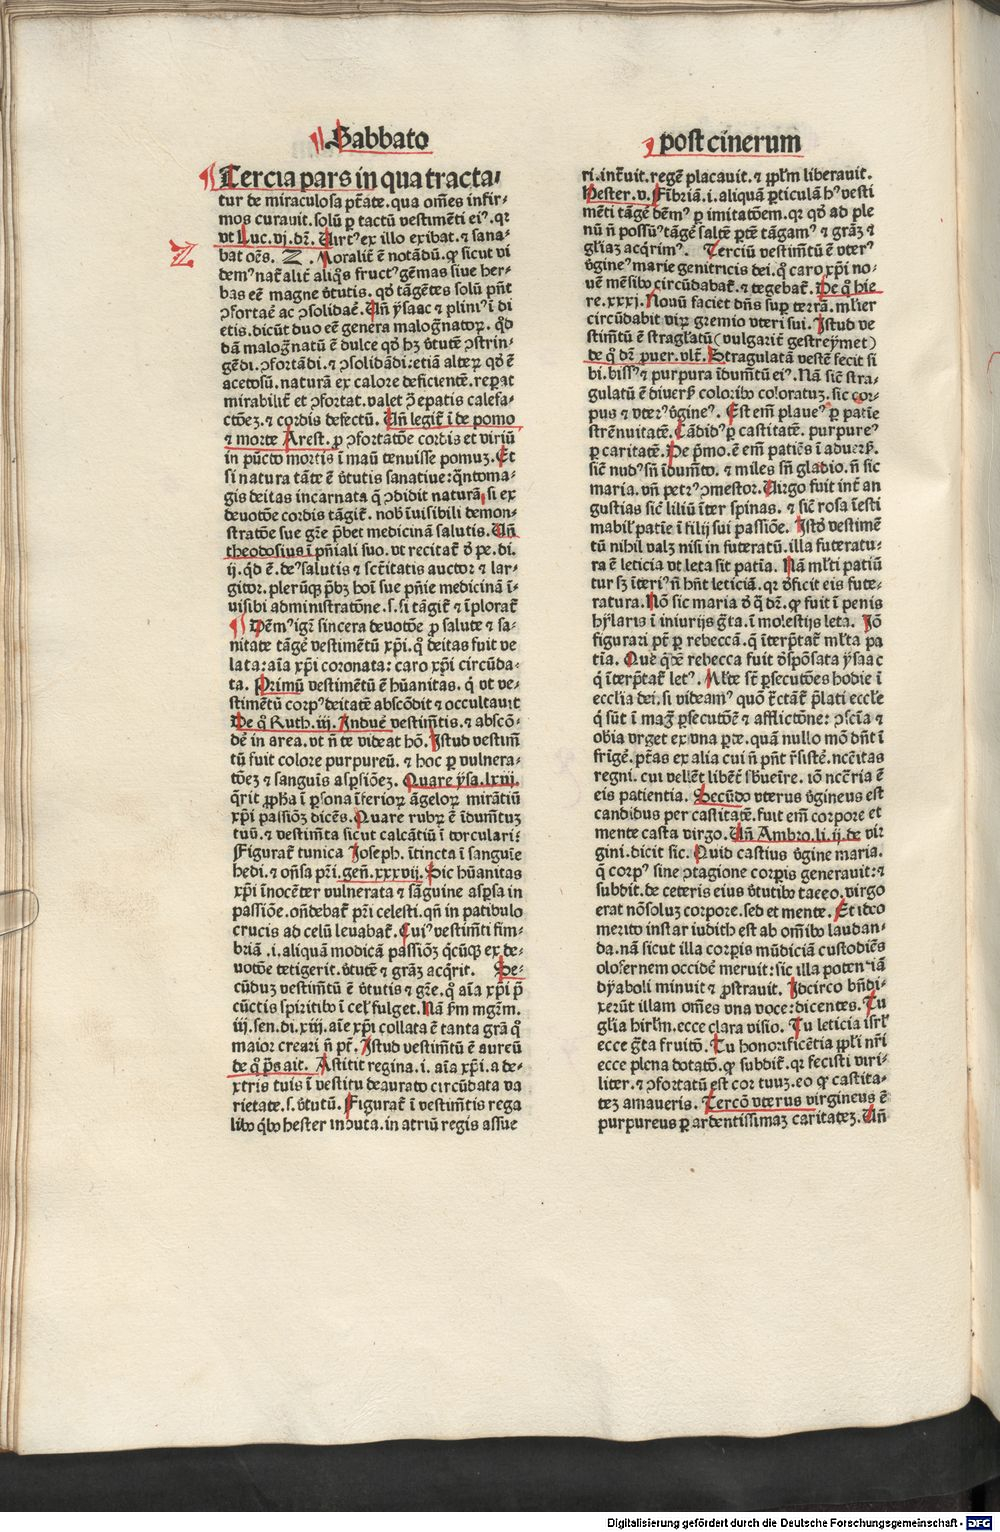 Sabbato
post cinerum
Tercia pars in qua tracta-
tur de miraculosa ptāte. qua om̄es infir-
mos curauit. solū ꝑ tactū vestimēti eiꝰ. qꝛ
vt Luc. vj. dr̄. Uirtꝰ ex illo exibat. ⁊ sana-
bat oēs. Z. Moralit̄ ē notādū. ꝙ sicut vi
demꝰ nat̄alit̄ aliq̄s fructꝰ gēmas siue her-
bas eē magne v̄tutis. qd̓ tāgētes solū pn̄t
ꝯfortare ac ꝯsolidare. Un̄ ysaac ⁊ pliniꝰ ī di
etis. dicūt duo eē genera malognatoꝝ. qd̓
dā malognatū ē dulce qd̓ hꝫ v̄tutē ꝯstrin-
gēdi. ꝯfortādi. ⁊ ꝯsolidādi: etiā alteꝝ qd̓ ē
acetosū. naturā ex calore deficientē. reꝑat
mirabilit̄ ⁊ ꝯfortat. valet ꝯ̄ epatis calefa-
ctōeꝫ. ⁊ cordis defectū. Un̄ legit̄ ī de pomo
⁊ morte Arest. ꝓ ꝯfortatōe cordis et viriū
in pūcto mortis ī manū tenuisse pomuꝫ. Et
si natura tāte ē v̄tutis sanatiue: qn̄toma-
gis deitas incarnata q̄ ꝯdidit naturā, si ex
deuotōe cordis tāgit̄. nob̄ īuisibili demon-
stratōe sue gr̄e p̄bet medicinā salutis. Un̄
theodosius ī pn̄iali suo. vt recitat̄ d̓ pe. di.
ij. qd̓ ē. deꝰ salutis ⁊ sctītatis auctor ⁊ lar-
gitor. plerūqꝫ p̄bꝫ hoī sue pn̄ie medicinā ī-
uisibi administratōne. s. si tāgit̄ ⁊ īplorat̄
¶ Demꝰ igr̄ sincera deuotōe ꝓ salute ⁊ sa-
nitate tāgē vestimētū xp̄i. q̄ deitas fuit ve
lata: aīa xp̄i coronata: caro xp̄i circūda-
ta. Primū vestimētū ē hūanitas. q̄ vt ve-
stimētū corpꝰ deitatē abscōdit ⁊ occultauit
De qͦ Ruth. iij. Induē vestimētis. ⁊ abscō-
dē in area. vt n̄ te videat hō. Istud vestim̄
tū fuit colore purpureū. ⁊ hoc ꝑ vulnera-
tōeꝫ ⁊ sanguīs asꝑsiōeꝫ. Quare ysa. lxiij.
q̄rit ꝓpha ī ꝑsona īferioꝝ āgeloꝝ mirātiū
xp̄i passiōꝫ dicēs. Quare rubꝝ ē īdumētuꝫ
tuū. ⁊ vestimēta sicut calcātiū ī torculari:
Figurat̄ tunica Joseph. ītincta ī sanguīe
hedi. ⁊ on̄sa pr̄i. gen̄. xxxvij. Sic hūanitas
xp̄i īnocēter vulnerata ⁊ sāguine asꝑsa in
passiōe. on̄debat̄ pr̄i celesti. qn̄ in patibulo
crucis ad celū leuabat̄. Cuiꝰ vestimēti fim-
briā .i. aliquā modicā passiōꝫ qcūqꝫ ex de-
uotōe tetigerit. v̄tutē ⁊ grāꝫ acq̄rit. Se-
cūduꝫ vestimētū ē v̄tutis ⁊ gr̄e. qͦ aīa xp̄i p̄
cūctis spiritibꝰ ī cel̄ fulget. Nā s̄m mgr̄m.
iij. sen. di. xiij. aīe xp̄i collata ē tanta grā qͦ
maior creari n̄ pt̄. Istud vestimētū ē aureū
de qͦ p̄s ait. Astitit regina. i. aīa xp̄i. a de-
xtris tuis ī vestitu deaurato circūdata va
rietate. s. v̄tutū. Figurat̄ ī vestimētis rega
libꝰ qͥbꝰ hester induta. in atriū regis assue
ri. int̄uit. regē placauit. ⁊ ppl̄m liberauit.
Hester. v. Fībriā. i. aliquā ꝑticulā hꝰ vesti
mēti tāgē dēmꝰ ꝑ imitatōem. qꝛ qd̓ ad ple
nū n̄ possūꝰ tāgē saltē ꝑtē tāgamꝰ ⁊ grāꝫ ⁊
gl̄iaꝫ acq̄rimꝰ. Terciū vestimētū ē vterꝰ
v̄gineꝰ marie genitricis dei. qͦ caro xp̄i no-
uē mēsibꝰ circūdabat̄. ⁊ tegebat̄. De qͦ hie
re. xxxj. Nouū faciet dn̄s suꝑ terrā. ml̄ier
circūdabit viꝝ gremio vteri sui. Istud ve
stimētū ē straglatū (vulgarit̄ gestreymet)
de qͦ dr̄ ꝓuer. vlt̄. Stragulatā vestē fecit si
bi. bissꝰ ⁊ purpura īdumētū eiꝰ. Nā sic̄ stra-
gulatū ē diuers̄ coloribꝰ coloratuꝫ. sic cor-
pus ⁊ vterꝰ v̄gineꝰ. Est em̄ plaueꝰ ꝑ patīe
strēnuitatē. Cādidꝰ ꝑ castitatē. purpureꝰ
ꝑ caritatē. De p̄mo. ē em̄ patiēs ī aduers̄.
sic̄ nudꝰ sn̄ īdumēto. ⁊ miles sn̄ gladio. n̄ sic
maria. vn̄ petrꝰ ꝯmestor. Uirgo fuit int̄ an
gustias sic̄ liliū īter spinas. ⁊ sic̄ rosa īesti
mabil̄ patīe ī filij sui passiōe. Istd̓ vestimē
tū nihil valꝫ nisi in futeratū. illa futeratu-
ra ē leticia vt leta sit patīa. Nā ml̄ti patiū
tur sꝫ īteriꝰ n̄ hn̄t leticiā. qꝛ d̓ficit eis fute-
ratura. Nō sic maria d̓ q̄ dr̄. ꝙ fuit ī penis
hylaris ī iniurijs grāta. ī molestijs leta. Iō
figurari pt̄ ꝑ rebeccā. q̄ īterp̄tat̄ ml̄ta pa
tīa. Que qͥdē rebecca fuit d̓spōsata ysaac
q̄ īterp̄tat̄ letꝰ. Ml̄te st̄ ꝑsecutōes hodie ī
ecclīa dei. si videamꝰ quō t̄ctāt̄ p̄lati eccl̄e
q̄ sūt ī magͣ ꝑsecutōē ⁊ afflictōne: ꝯscīa ⁊
obīa vrget ex vna ꝑte. quā nullo mō dn̄t ī
frīgē. ptās ex alia cui n̄ pn̄t r̄sistē. nc̄itas
regni. cui vellēt liberē sb̓ueīre. iō nc̄eria ē
eis patientia. Secūdo vterus v̄gineus est
candidus per castitatē. fuit em̄ corpore et
mente casta virgo. Un̄ Ambro. li. ij. de vir
gini. dicit sic. Quid castius v̄gine maria.
q̄ corpꝰ sine ꝯtagione corꝑis generauit: ⁊
subdit. de ceteris eius v̄tutibꝰ taceo. virgo
erat nōsoluꝫ corpore. sed et mente. Et ideo
merito instar iudith est ab om̄ibꝰ laudan-
da. nā sicut illa corꝑis mūdiciā custodiēs
olofernem occidē meruit: sic illa potentiā
dyaboli minuit ⁊ ꝓstrauit. Idcirco bn̄di-
xerūt illam om̄es vna voce: dicentes. Tu
gl̄ia hirl̄m. ecce clara visio. Tu leticia isrl̄
ecce grāta fruitō. Tu honorificētia ppl̄i nr̄i
ecce plena dotatō. ꝙ subdit̄. qꝛ fecisti viri-
liter. ⁊ ꝯfortatū est cor tuuꝫ. eo ꝙ castita-
teꝫ amaueris. Tercō vterus virgineus ē
purpureus ꝑ ardentissimaꝫ caritateꝫ. Un̄
Digitalisierung gefördert durch die Deutsche Forschungsgemeinschaft - DFG